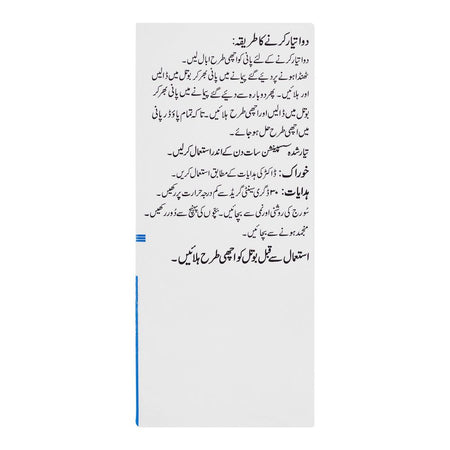 دوا تیار کرنے کا طریقہ:
دوا تیار کرنے کے لئے پانی کو اچھی طرح ابال لیں۔
ٹھنڈا ہونے پر دیئے گئے پیمانے میں پانی بھر کر بوتل میں ڈالیں
اور ہلائیں۔ پھر دوبارہ سے دیئے گئے پیمانے میں پانی بھر کر
بوتل میں ڈالیں اور اچھی طرح ہلائیں۔ تاکہ تمام پاؤڈر پانی
میں اچھی طرح حل ہو جائے۔
تیار شدہ سسپینشن سات دن کے اندر استعمال کرلیں۔
خوراک: ڈاکٹر کی ہدایات کے مطابق استعمال کریں۔
ہدایات: ۳۰ ڈگری سینٹی گریڈ سے کم درجہ حرارت پر رکھیں۔
سورج کی روشنی اور نمی سے بچائیں۔ بچوں کی پہنچ سے دور رکھیں۔
منجمد ہونے سے بچائیں۔
استعمال سے قبل بوتل کو اچھی طرح ہلائیں۔